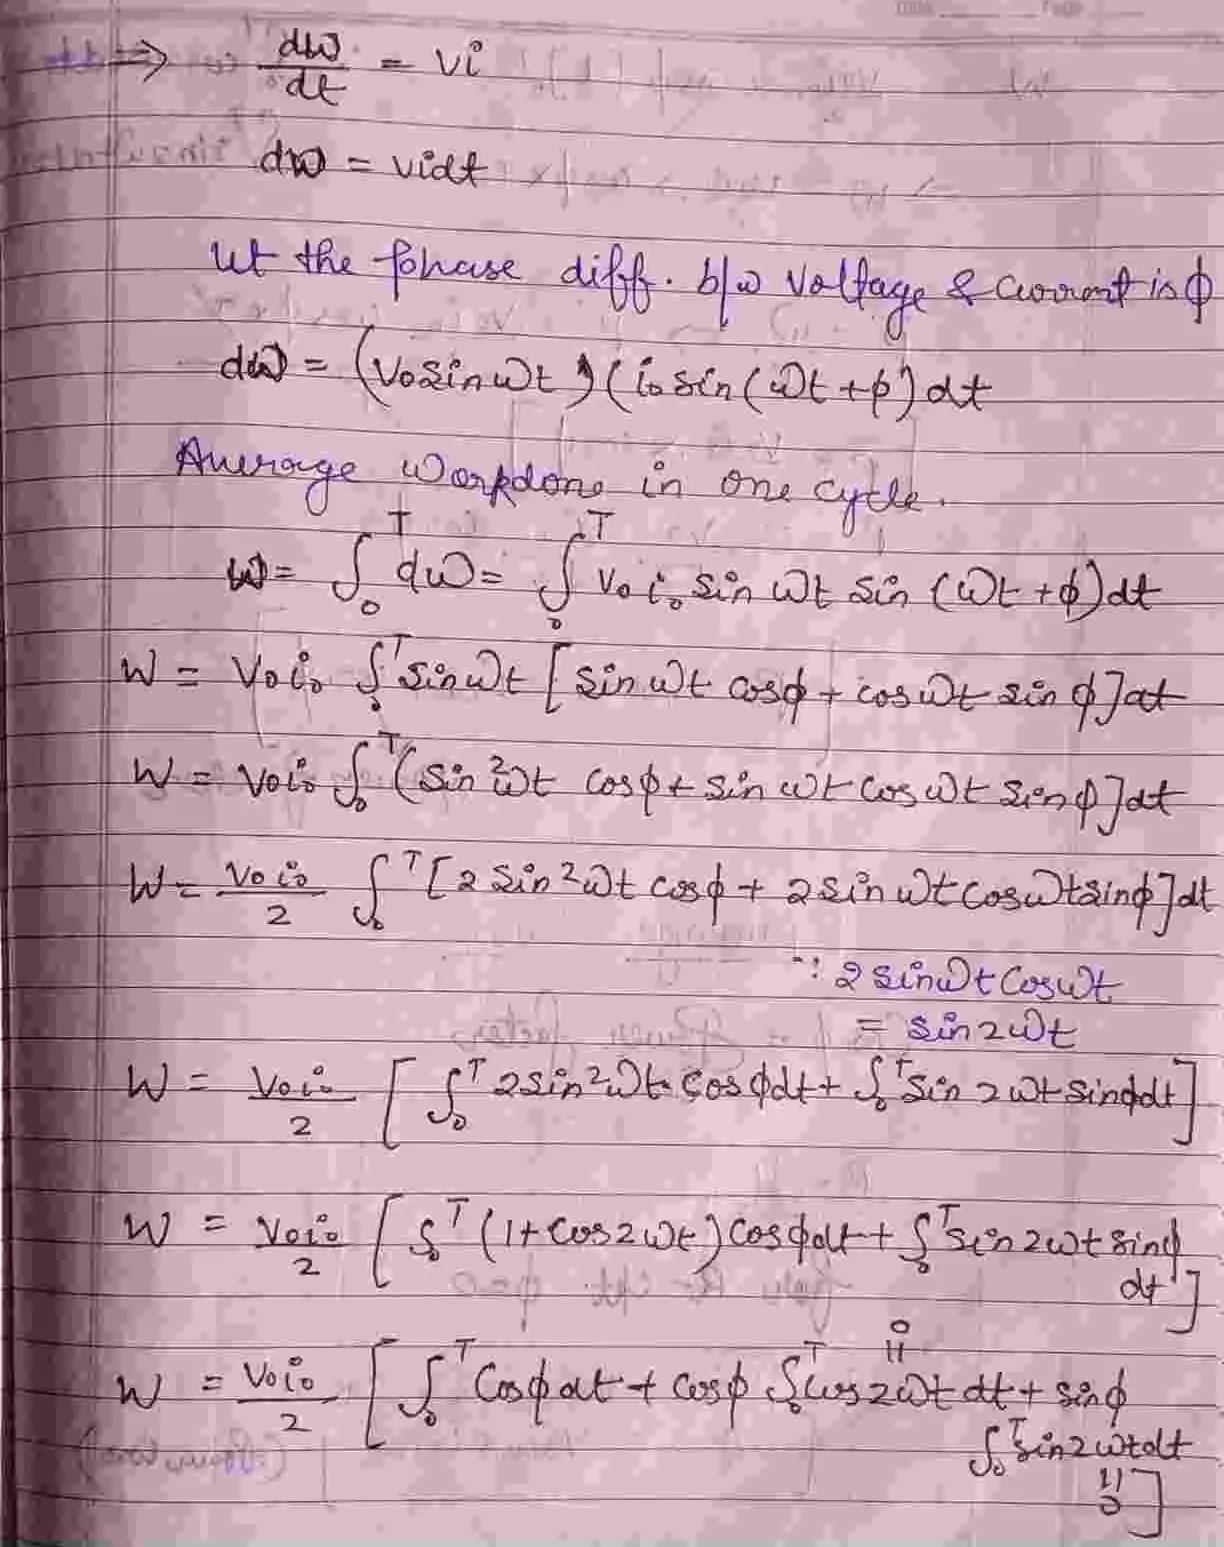 ⇒ dW/dt = vi
dw = vidt
Let the phase diff. b/w voltage & current is ϕ
dw = (V₀ sin ωt) (i₀ sin (ωt + ϕ) dt
Average workdone in one cycle.
W = ∫₀ᵀ dw = ∫₀ᵀ V₀ i₀ sin ωt sin (ωt + ϕ) dt
W = V₀i₀ ∫₀ᵀ sin ωt [sin ωt cosϕ + cos ωt sin ϕ] dt
W = V₀i₀ ∫₀ᵀ (sin²ωt cosϕ + sin ωt cos ωt sinϕ] dt
W = V₀i₀/2 ∫₀ᵀ [2 sin²ωt cosϕ + 2 sin ωt cos ωt sinϕ] dt
∵ 2 sin ωt cos ωt
= sin 2ωt
W = V₀i₀/2 [∫₀ᵀ 2 sin²ωt cosϕ dt + ∫₀ᵀ sin 2ωt sinϕ dt]
W = V₀i₀/2 [∫₀ᵀ (1 + cos 2ωt) cosϕ dt + ∫₀ᵀ sin 2ωt sinϕ
dt]
0
||
W = V₀i₀/2 [∫₀ᵀ cosϕ dt + cosϕ ∫₀ᵀ cos 2ωt dt + sinϕ
∫₀ᵀ sin 2ωt dt
||
0 ]